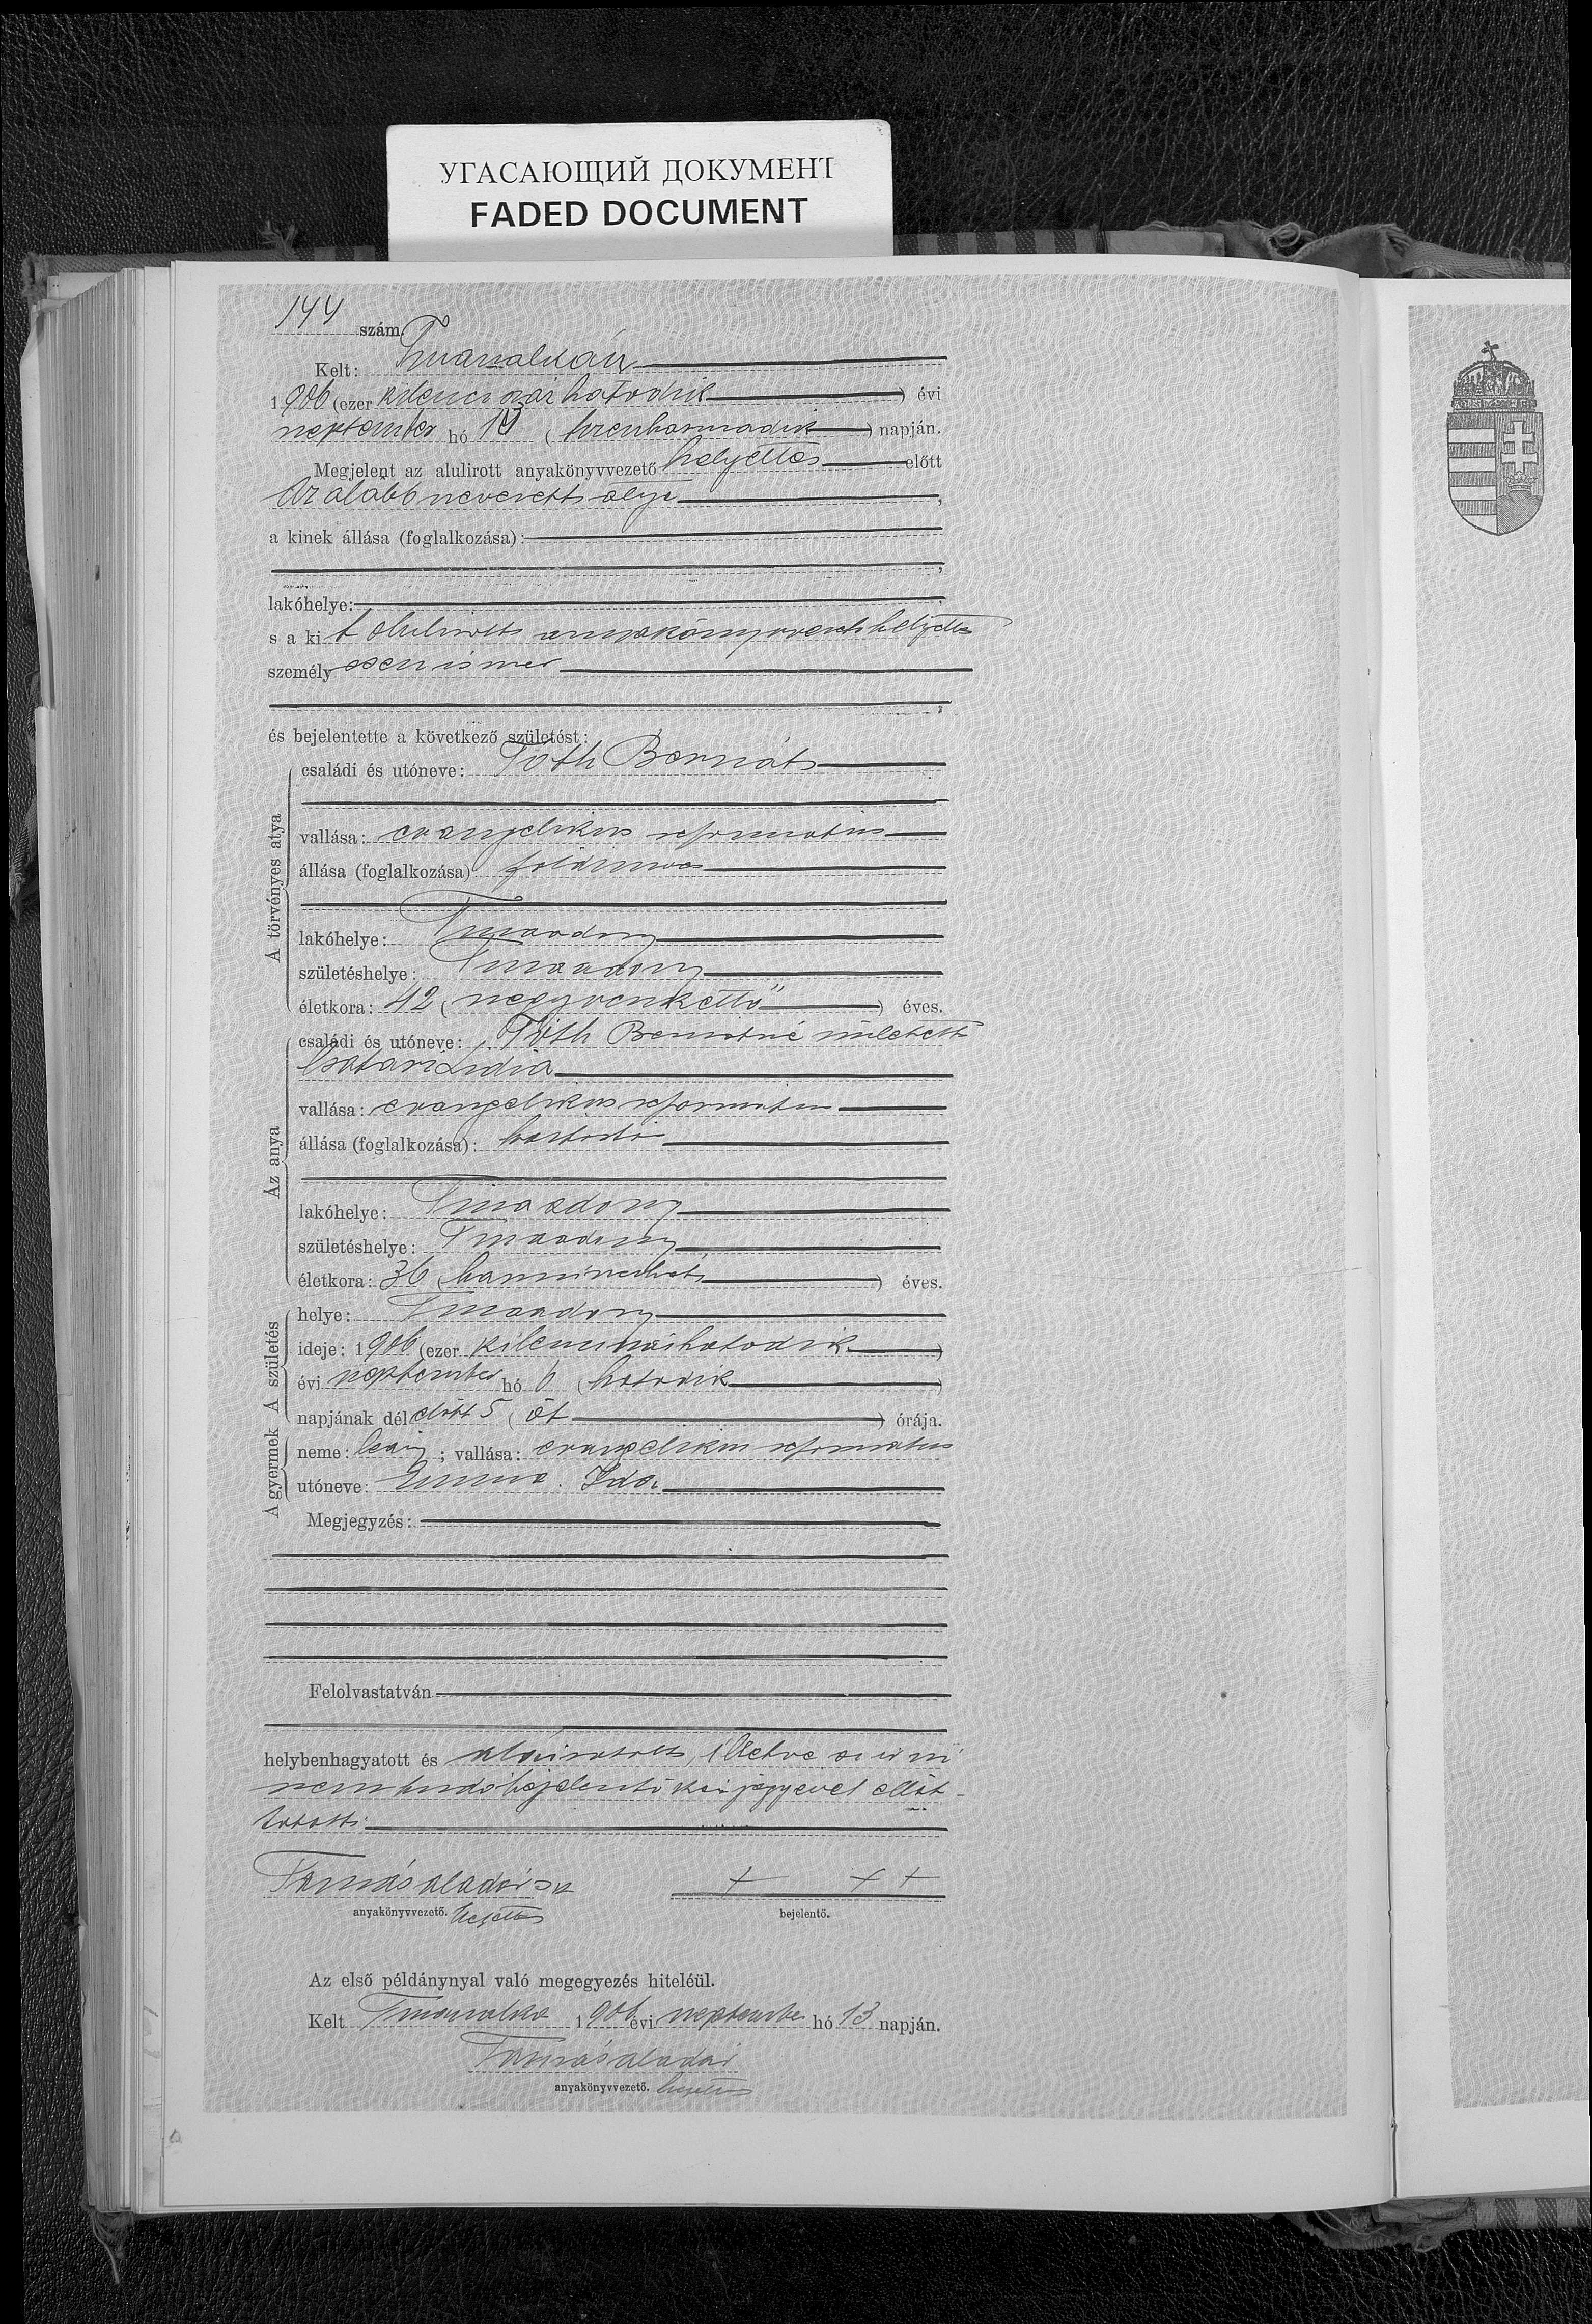 УГАСАЮЩИЙ ДОКУМЕНТ
FADED DOCUMENT
144 szám
Kelt:
1906 (ezer kilenczszázhatodik) évi
szeptember hó 13 (tizenharmadik) napján.
Megjelent az alulirott anyakönyvvezető helyettes előtt
Az alább nevezett atya,
a kinek állása (foglalkozása):
lakóhelye:
s a kit alulirott anyakönyvvezető helyettes
személyesen ismer
és bejelentette a következő születést:
A törvényes atya
családi és utóneve: Tóth Bernáth
vallása: evangelikus reformatus
állása (foglalkozása) földmives
lakóhelye: Tiszaadony
születéshelye: Tiszaadony
életkora: 42 (negyvenkettő) éves.
Az anya
családi és utóneve: Tóth Bernátné született
Csatári Lidia
vallása: evangelikus reformatus
állása (foglalkozása):
lakóhelye: Tiszaadony
születéshelye: Tiszaadony
életkora: 36 (harminchat) éves.
A születés
helye: Tiszaadony
ideje: 1906 (ezer kilenczszázhatodik)
évi szeptember hó 6 (hatodik)
napjának délelőtt 5 (öt) órája.
A gyermek
neme: leány; vallása: evangelikus reformatus
utóneve: Emma Ida
Megjegyzés:
Felolvastatván
helybenhagyatott és aláiratott, illetve az irni
nem tudó bejelentő kézjegyével ellát-
tatott.
Tamás Aladár sk + + +
anyakönyvvezető. helyettes bejelentő.
Az első példánynyal való megegyezés hiteléül.
Kelt 1906 évi szeptember hó 13 napján.
Tamás Aladár
anyakönyvvezető. helyettes